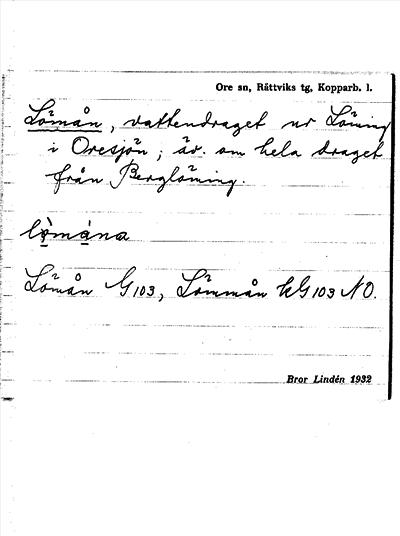 Ore sn, Rättviks tg, Kopparb. l.
Lömån, vattendraget ur Löning
i Oresjön; äv. om hela draget
från Berglöning.
lö̀mána
Lömån G 103, Lömmån kG 103 NO.
Bror Lindén 1932